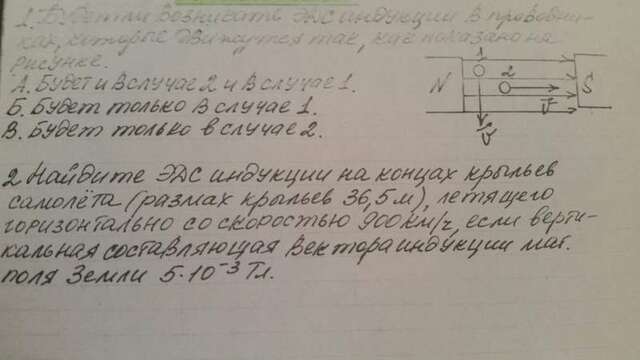 1. Будет ли возникать ЭДС индукции в проводни-
ках, которые движутся так, как показано на
рисунке.
А. Будет и в случае 2 и в случае 1.
Б. Будет только в случае 1.
В. Будет только в случае 2.
N 1 2 S
v⃗ v⃗
2 Найдите ЭДС индукции на концах крыльев
самолёта (размах крыльев 36,5 м), летящего
горизонтально со скоростью 900 км/ч, если верти-
кальная составляющая вектора индукции маг.
поля Земли 5·10⁻³ Тл.